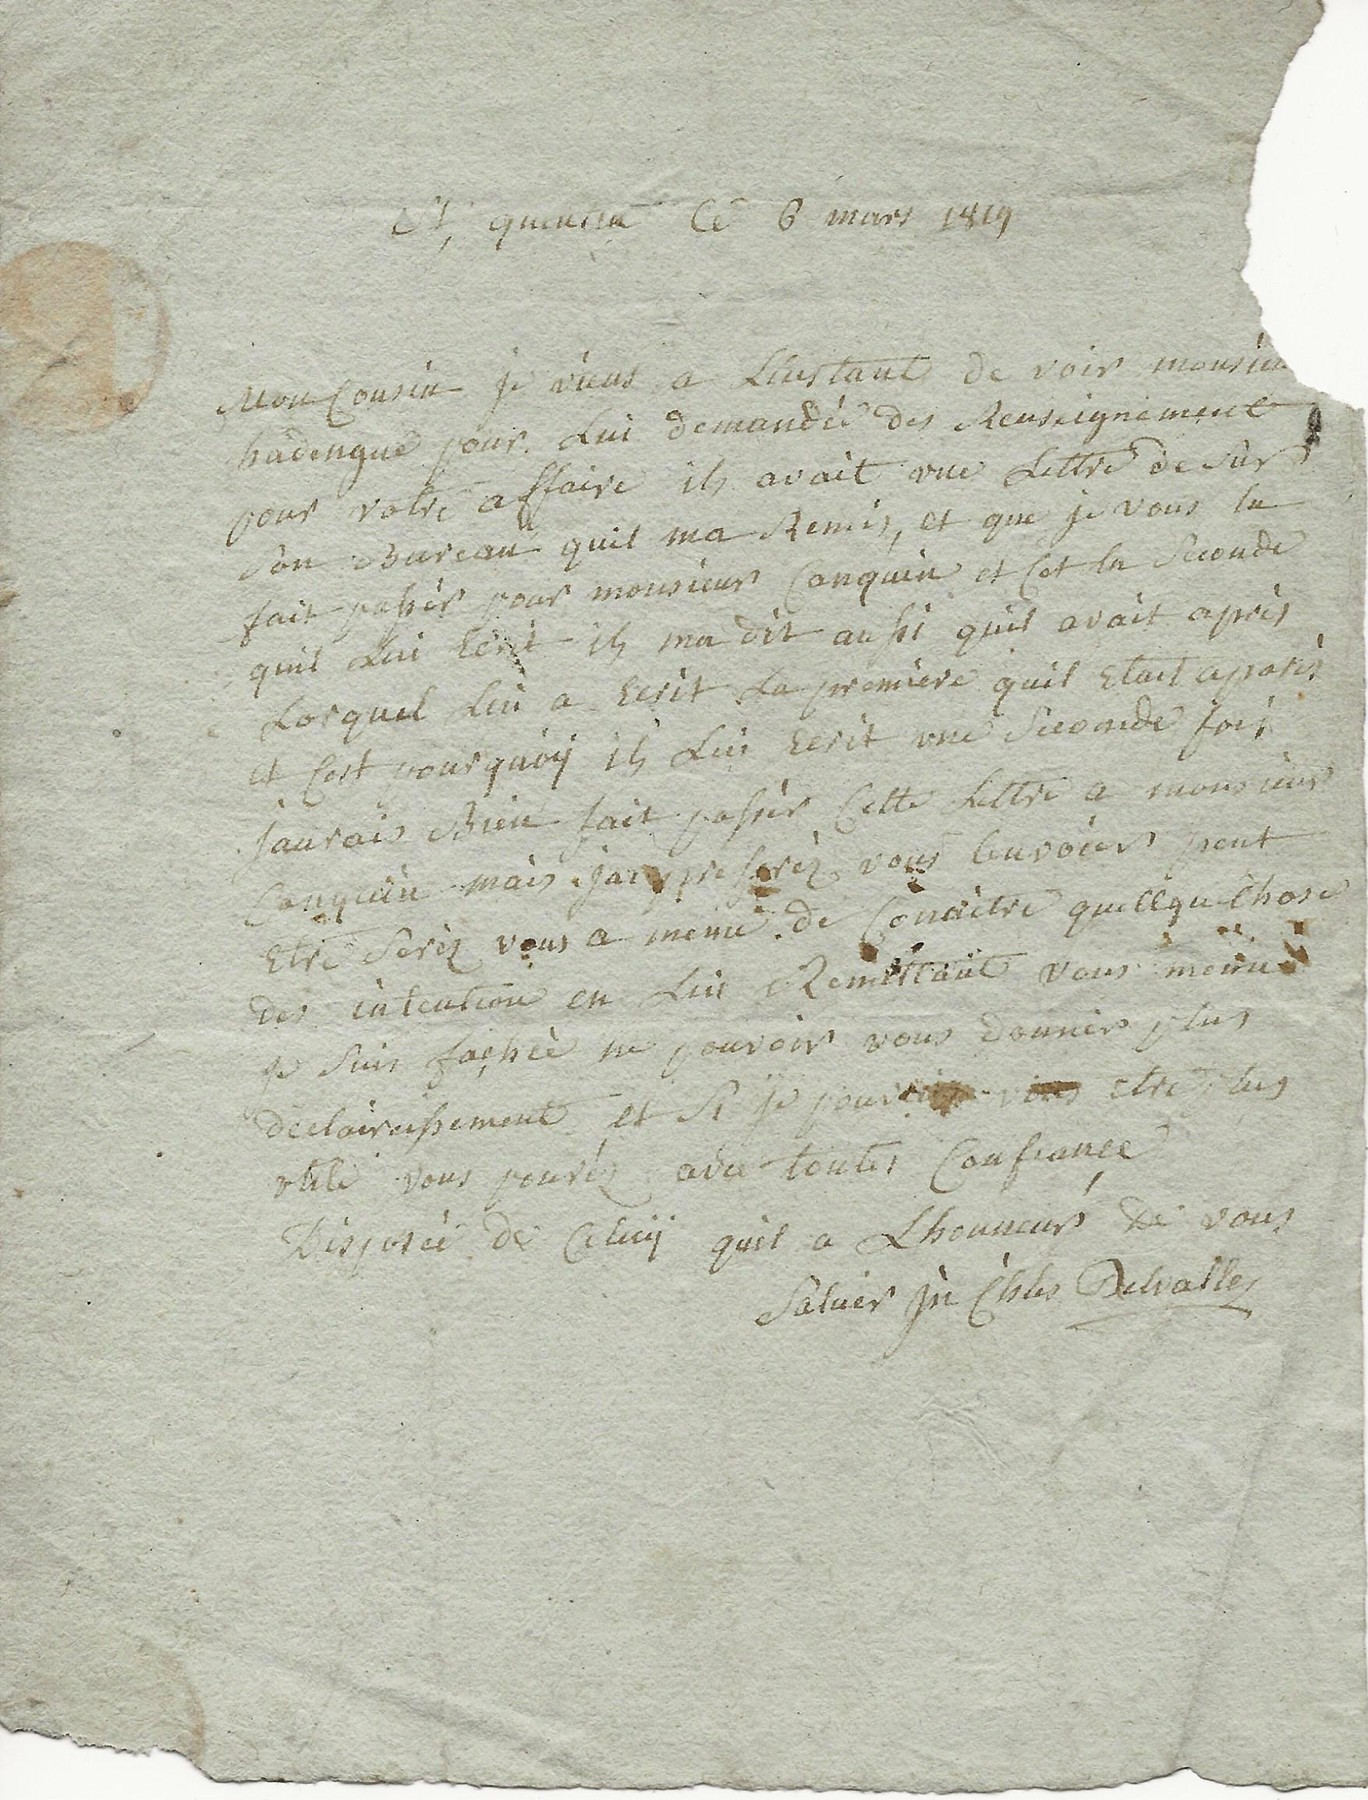 St, quentin Ce 6 mars 1819
Mon Cousin je viens a Linstant de voir monsieu
hadengue pour Lui demandée des Renseignement
pour votre affaire ils avait une Lettre de Sur
Son Bureau quil ma Remis, et que je vous la
fait passér pour monsieur Conquin et Cet la Seconde
quil Lui Ecrit ils ma dit aussi quil avait apris
Lorquel Lui a Ecrit La premiere quil Etait aparis
et Cest pourquoÿ ils Lui Ecrit une Seconde fois
jaurais Bien fait passér Cette Lettre a monsieur
Conquin mais jai preferéz vous Lenvoiér peut
Etre Seréz vous a meme de Conaitre quellque Chose
des intention en Lui Remettant vous meme
je Suis fachée ne pouvoir vous donnér plus
declaircissement et Si je vous etre plus
utile vous pouréz avec toutes Confiance
Disposée de Celuÿ quil a Lhonneur de vous
Saluér Jn Chles Delvalles